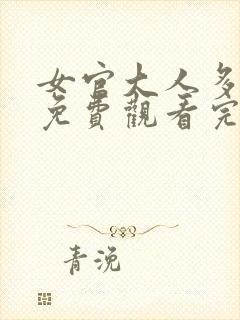 女官大人多
免費觀看完
青浼